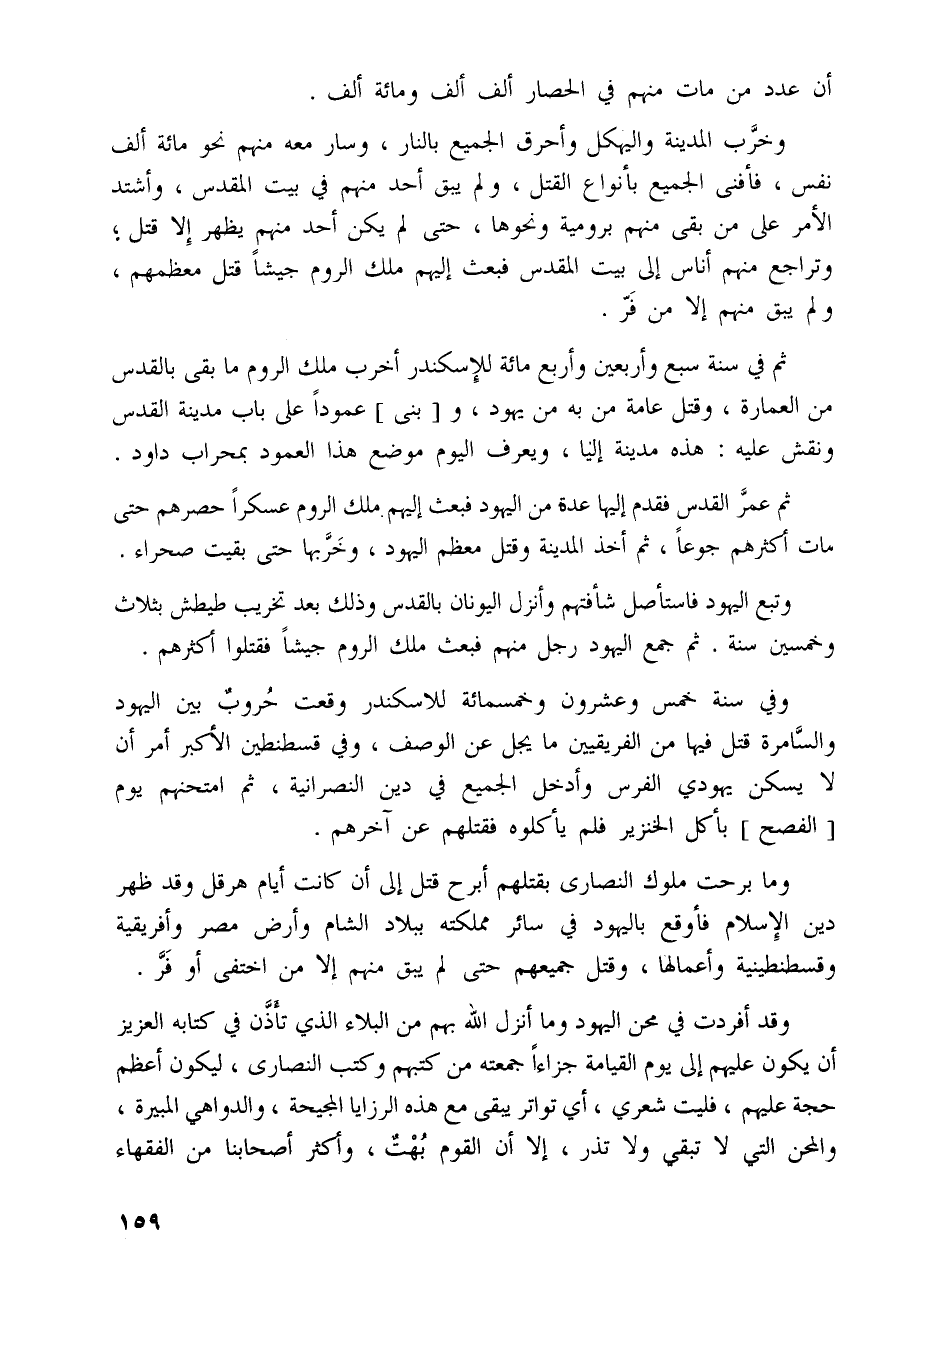 أن عدد من مات منهم في الحصار ألف ألف ومائة ألف .
وخرَّب المدينة والهيكل وأحرق الجميع بالنار ، وسار معه منهم نحو مائة ألف
نفس ، فأفنى الجميع بأنواع القتل ، ولم يبق أحد منهم في بيت المقدس ، وأشتد
الأمر على من بقى منهم برومية ونحوها ، حتى لم يكن أحد منهم يظهر إلا قتل ؛
وتراجع منهم أناس إلى بيت المقدس فبعث إليهم ملك الروم جيشاً قتل معظمهم ،
ولم يبق منهم إلا من فَرّ .
ثم في سنة سبع وأربعين وأربع مائة للإسكندر أخرب ملك الروم ما بقى بالقدس
من العمارة ، وقتل عامة من به من يهود ، و [ بنى ] عموداً على باب مدينة القدس
ونقش عليه : هذه مدينة إليا ، ويعرف اليوم موضع هذا العمود بمحراب داود .
ثم عمرَّ القدس فقدم إليها عدة من اليهود فبعث إليهم ملك الروم عسكراً حصرهم حتى
مات أكثرهم جوعاً ، ثم أخذ المدينة وقتل معظم اليهود ، وخَرَّبها حتى بقيت صحراء .
وتبع اليهود فاستأصل شأفتهم وأنزل اليونان بالقدس وذلك بعد تخريب طيطش بثلاث
وخمسين سنة . ثم جمع اليهود رجل منهم فبعث ملك الروم جيشاً فقتلوا أكثرهم .
وفي سنة خمس وعشرون وخمسمائة للاسكندر وقعت حُروبٌ بين اليهود
والسَّامرة قتل فيها من الفريقيين ما يجل عن الوصف ، وفي قسطنطين الأكبر أمر أن
لا يسكن يهودي الفرس وأدخل الجميع في دين النصرانية ، ثم امتحنهم يوم
[ الفصح ] بأكل الخنزير فلم يأكلوه فقتلهم عن آخرهم .
وما برحت ملوك النصارى بقتلهم أبرح قتل إلى أن كانت أيام هرقل وقد ظهر
دين الإسلام فأوقع باليهود في سائر مملكته ببلاد الشام وأرض مصر وأفريقية
وقسطنطينية وأعمالها ، وقتل جميعهم حتى لم يبق منهم إلا من اختفى أو فَرَّ .
وقد أفردت في محن اليهود وما أنزل الله بهم من البلاء الذي تأَذَّن في كتابه العزيز
أن يكون عليهم إلى يوم القيامة جزاءاً جمعته من كتبهم وكتب النصارى ، ليكون أعظم
حجة عليهم ، فليت شعري ، أي تواتر يبقى مع هذه الرزايا المجيحة ، والدواهي المبيرة ،
والمحن التي لا تبقي ولا تذر ، إلا أن القوم بُهْتٌ ، وأكثر أصحابنا من الفقهاء
١٥٩